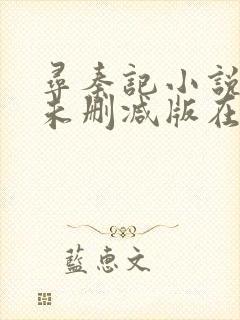 尋秦記小説
未刪減版在
藍惠文